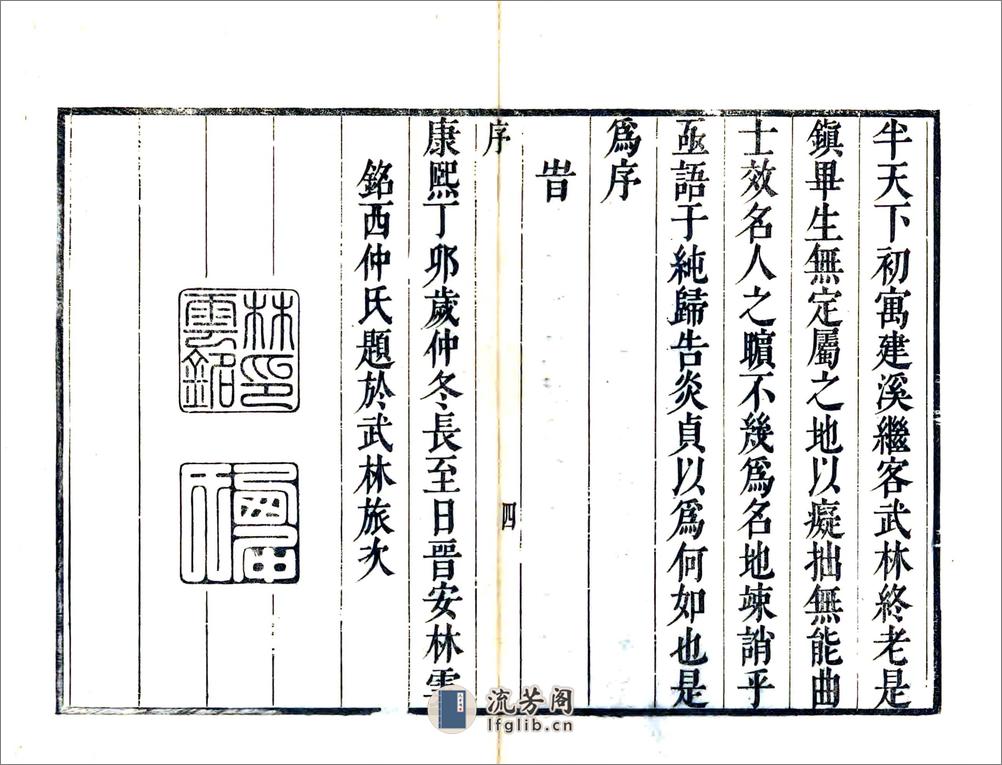 半天下初寓建溪繼客武林終老是
鎮畢生無定屬之地以癡拙無能曲
士效名人之矉不幾為名地竦誚乎
亟語于純歸告炎貞以為何如也是
為序
旹
序
四
康熙丁夘歲仲冬長至日晉安林雲
銘西仲氏題於武林旅次
林印
雲銘
流芳阁
lfglib.cn